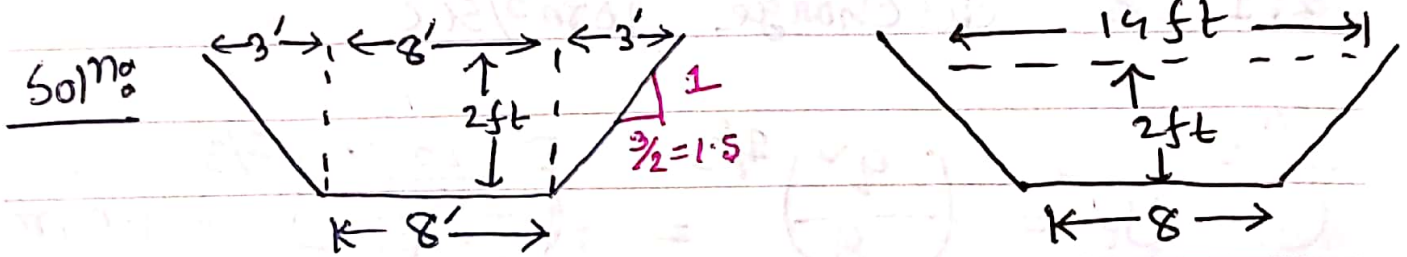 Soln:
3' 8' 3'
2ft
1
3/2 = 1.5
8'
14 ft
2ft
8